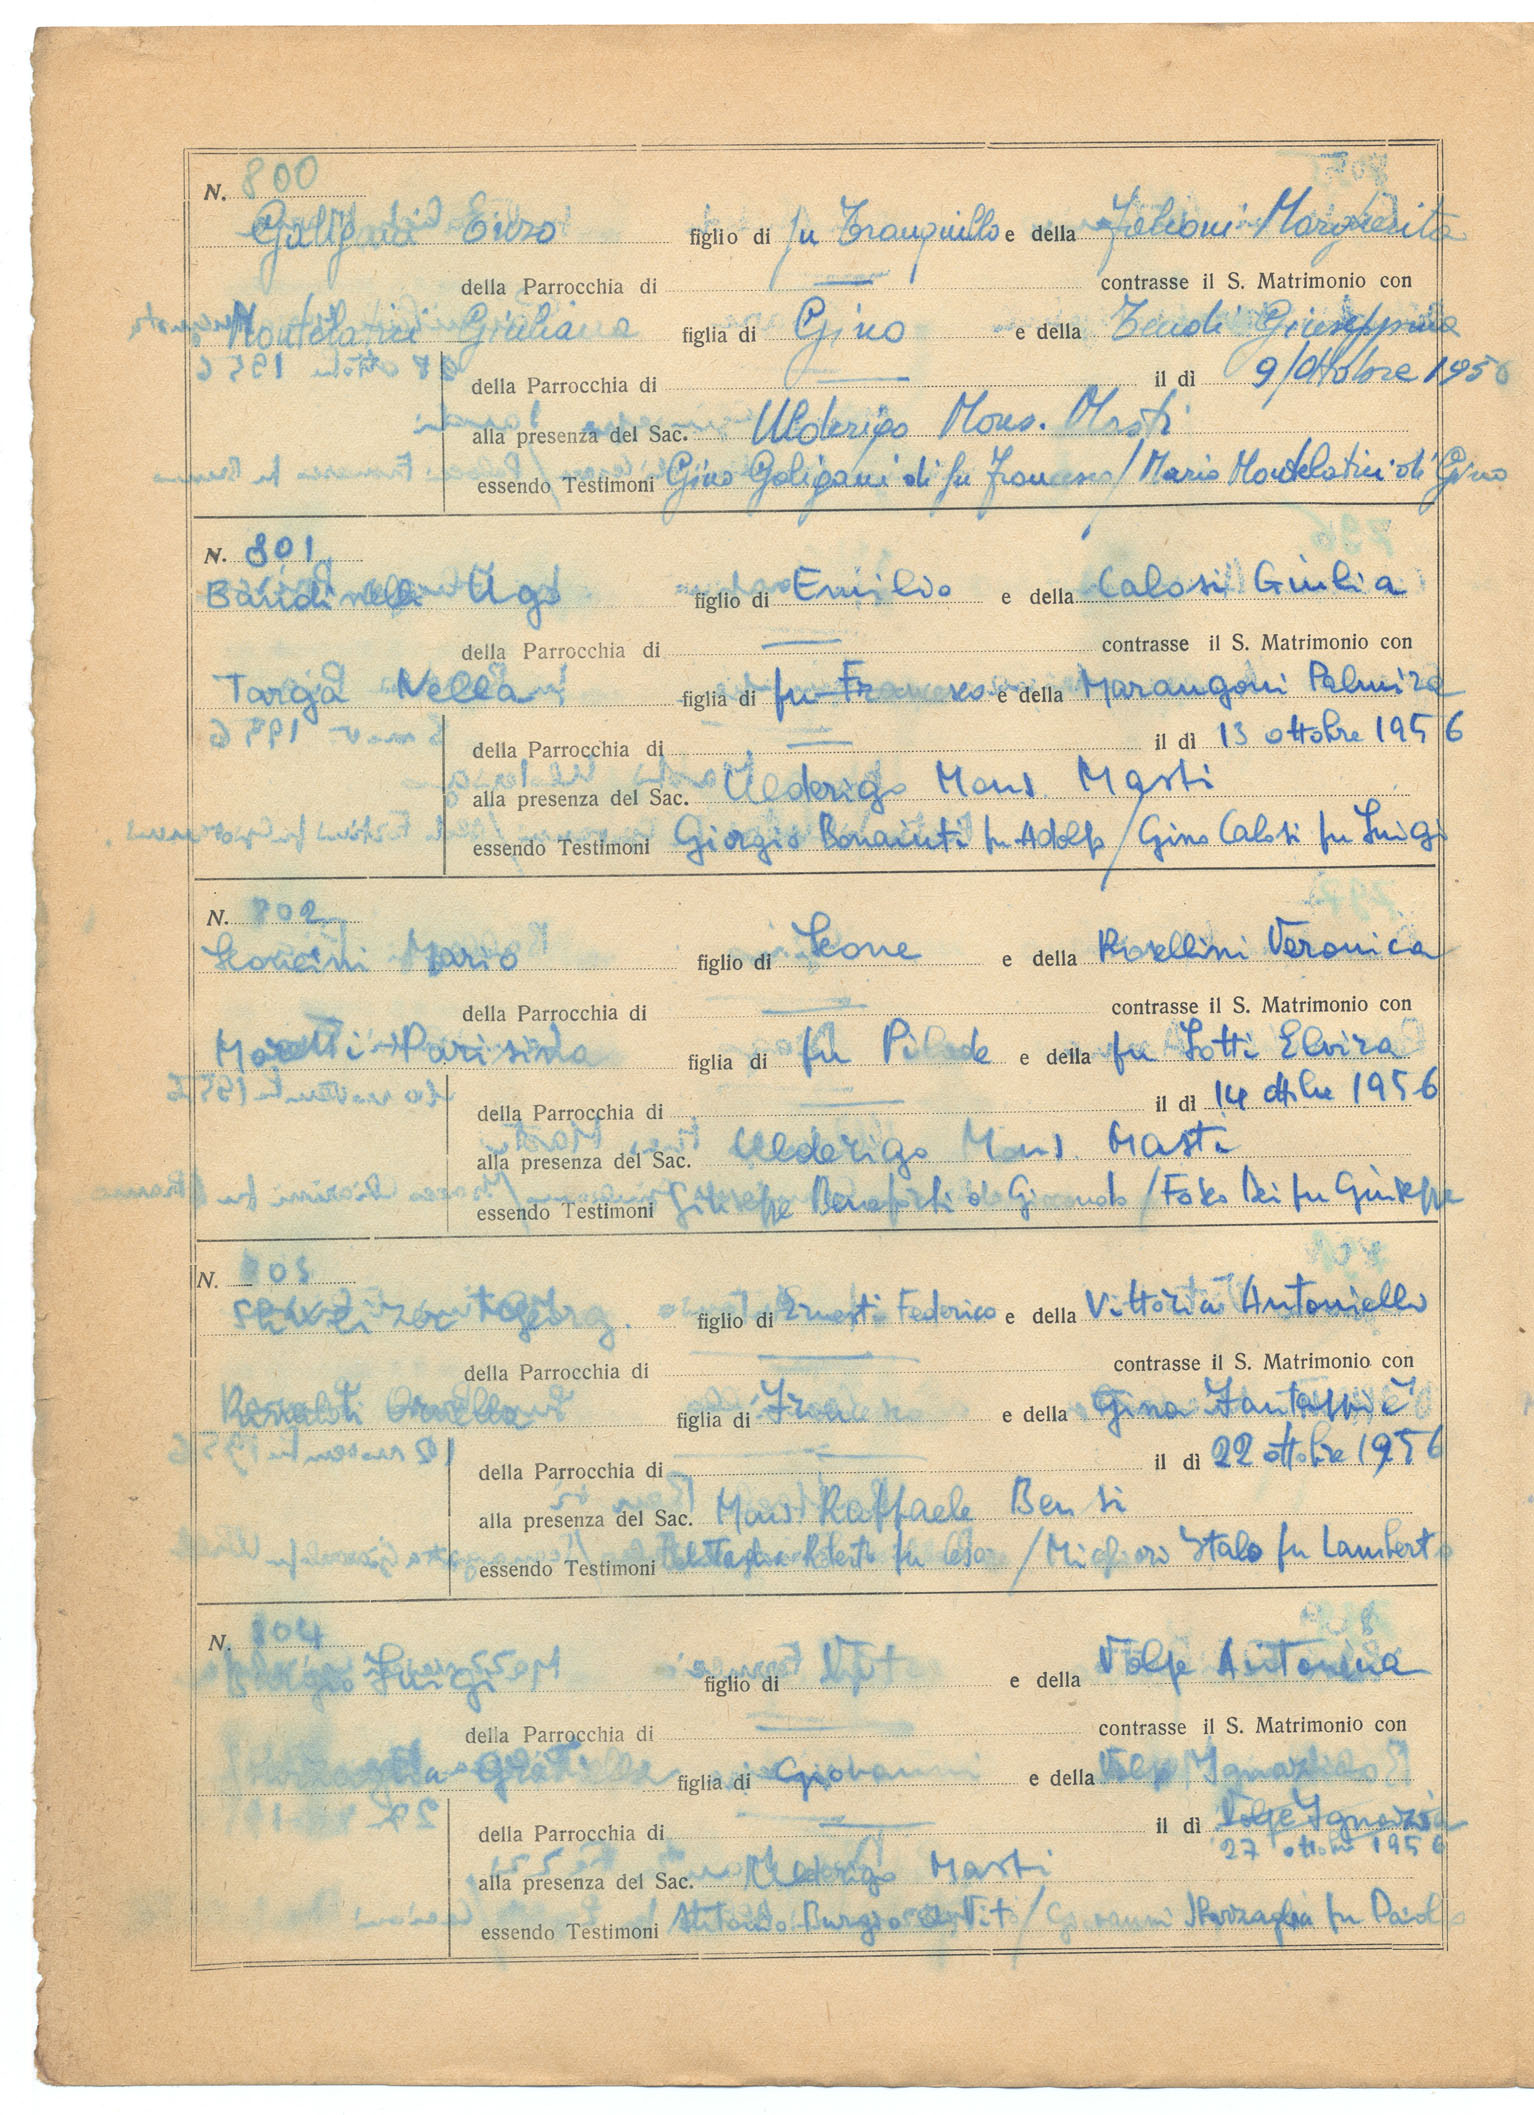 N. 800
Galigani Enzo figlio di fu Tranquillo e della Falconi Margherita
della Parrocchia di — contrasse il S. Matrimonio con
Montelatici Giuliana figlia di Gino e della Tendi Giuseppina
della Parrocchia di — il dì 9/Ottobre 1956
alla presenza del Sac. Ulderigo Mons. Masti
essendo Testimoni Gino Galigani di fu Francesco / Mario Montelatici di Gino
N. 801
Bandinelli Ugo figlio di Emilio e della Calosi Giulia
della Parrocchia di — contrasse il S. Matrimonio con
Targa Nella figlia di fu Francesco e della Marangoni Palmira
della Parrocchia di — il dì 13 ottobre 1956
alla presenza del Sac. Ulderigo Mons. Masti
essendo Testimoni Giorgio Bonaiuti fu Adolfo / Gino Calosi fu Luigi
N. 802
Mario figlio di Leone e della Rosellini Veronica
della Parrocchia di — contrasse il S. Matrimonio con
Moretti Parisina figlia di fu Pilade e della fu Lotti Elvira
della Parrocchia di — il dì 14 ottobre 1956
alla presenza del Sac. Ulderigo Mons. Masti
essendo Testimoni Giuseppe di / Fosco Bei fu Giuseppe
N. 803
Georg. figlio di Ernesti Federico e della Vittoria Antoniello
della Parrocchia di — contrasse il S. Matrimonio con
Ornella figlia di e della Gina Fantappiè
della Parrocchia di il dì 22 ottobre 1956
alla presenza del Sac. Mons. Raffaele Bensi
essendo Testimoni Del Taglia Alberto fu Cesare / Migliori Italo fu Lamberto
N. 804
Burgio Luigi figlio di Vito e della Volpe Antonina
della Parrocchia di — contrasse il S. Matrimonio con
figlia di Giovanni e della Volpe Ignazia
della Parrocchia di — il dì Volpe Ignazia
27 ottobre 1956
alla presenza del Sac. Ulderigo Masti
essendo Testimoni Antonio Burgio di Vito / Giovanni Sbarzaglia fu Paolo